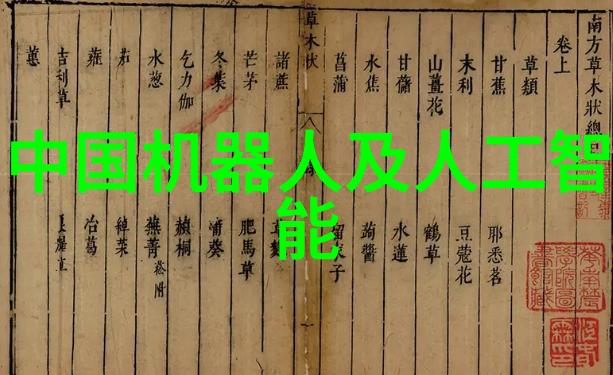 中国机器人及人工智
能
南方草木狀總目
卷上
草類
甘蕉 耶悉茗
末利 豆蔻花
山薑花 鶴草
甘藷 水蓮
水蕉 蒟醬
菖蒲 子
草木狀 八
諸蔗
芒茅 肥馬草
冬葉 蒲葵
乞力伽 赬桐
水葱 蕪菁 菘附
茄 綽菜
蕹 冶葛
吉利草
蕙